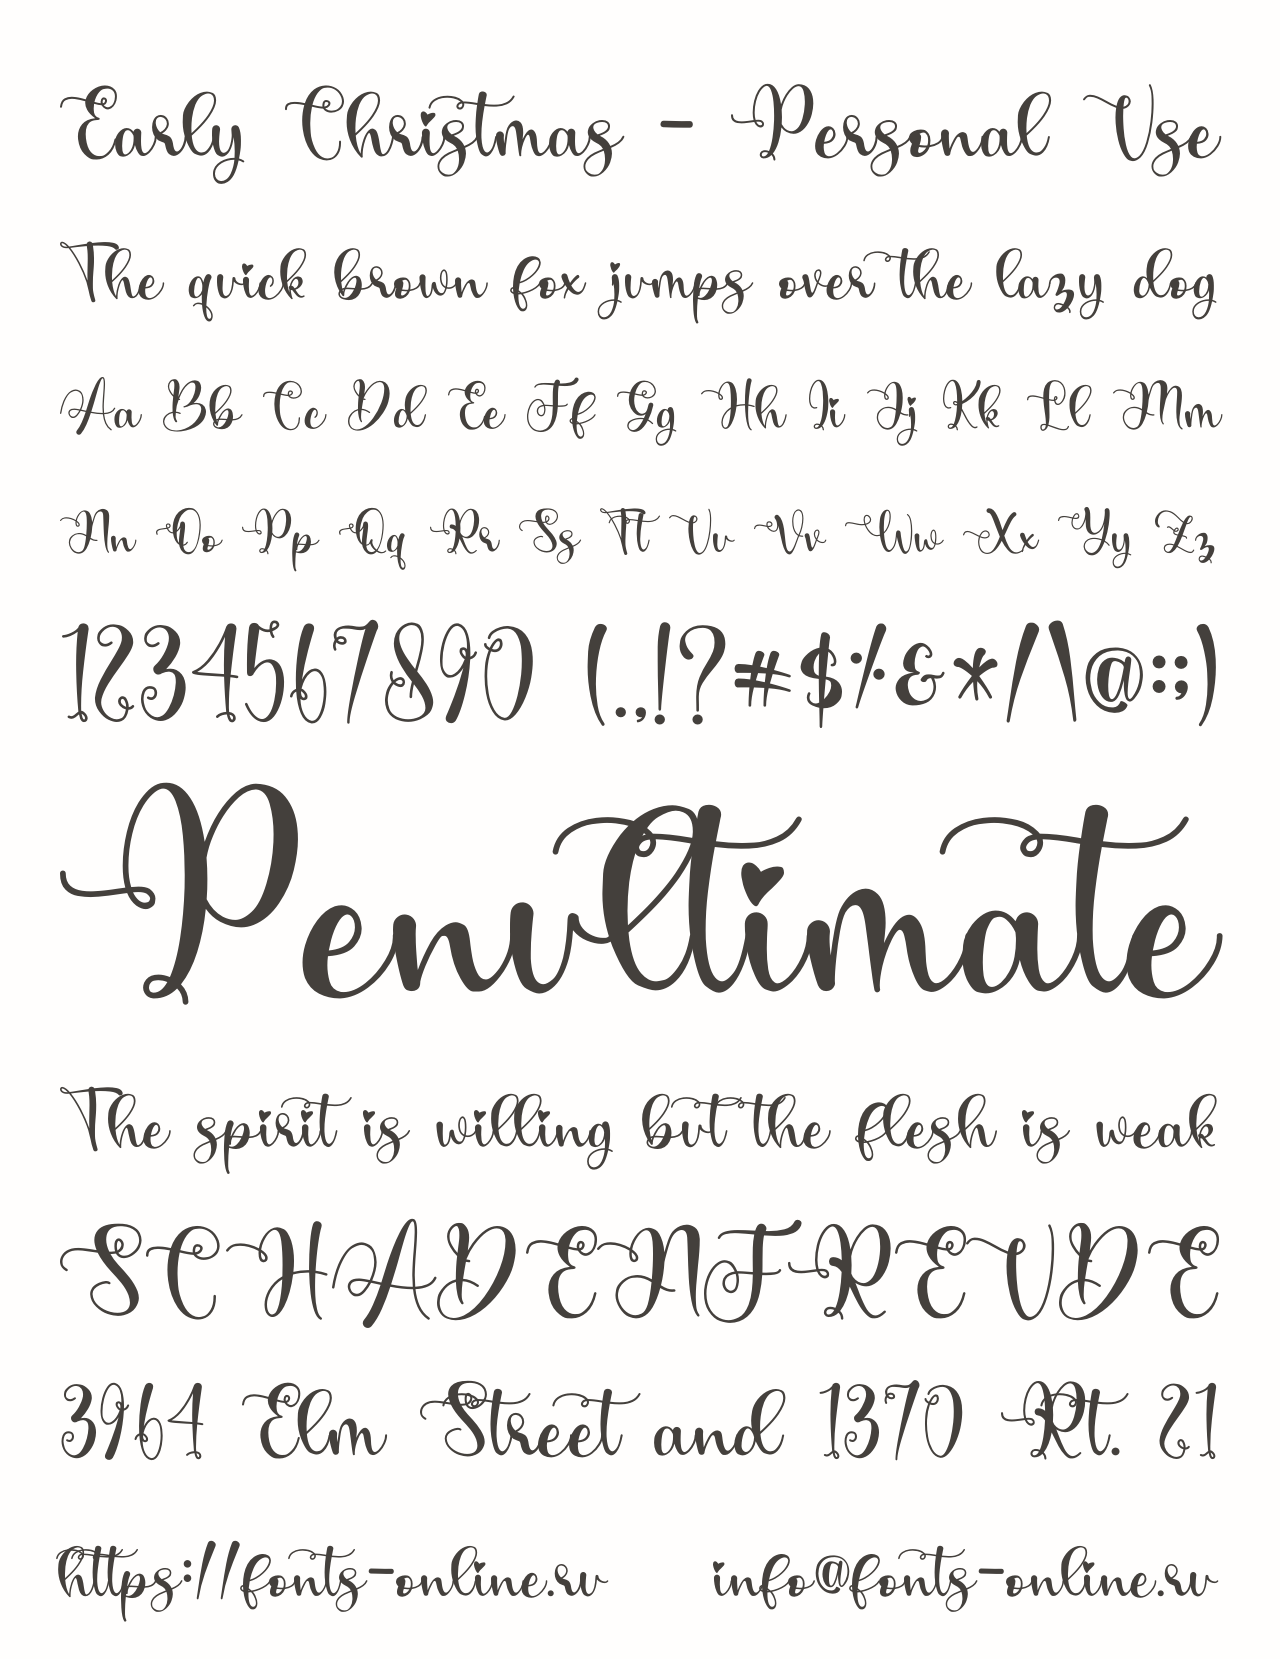 Early Christmas - Personal Use
The quick brown fox jumps over the lazy dog
Aa Bb Cc Dd Ee Ff Gg Hh Ii Jj Kk Ll Mm
Nn Oo Pp Qq Rr Ss Tt Uu Vv Ww Xx Yy Zz
1234567890 (.,!?#$%&*/\@:;)
Penultimate
The spirit is willing but the flesh is weak
SCHADENFREUDE
3964 Elm Street and 1370 Rt. 21
https://fonts-online.ru info@fonts-online.ru